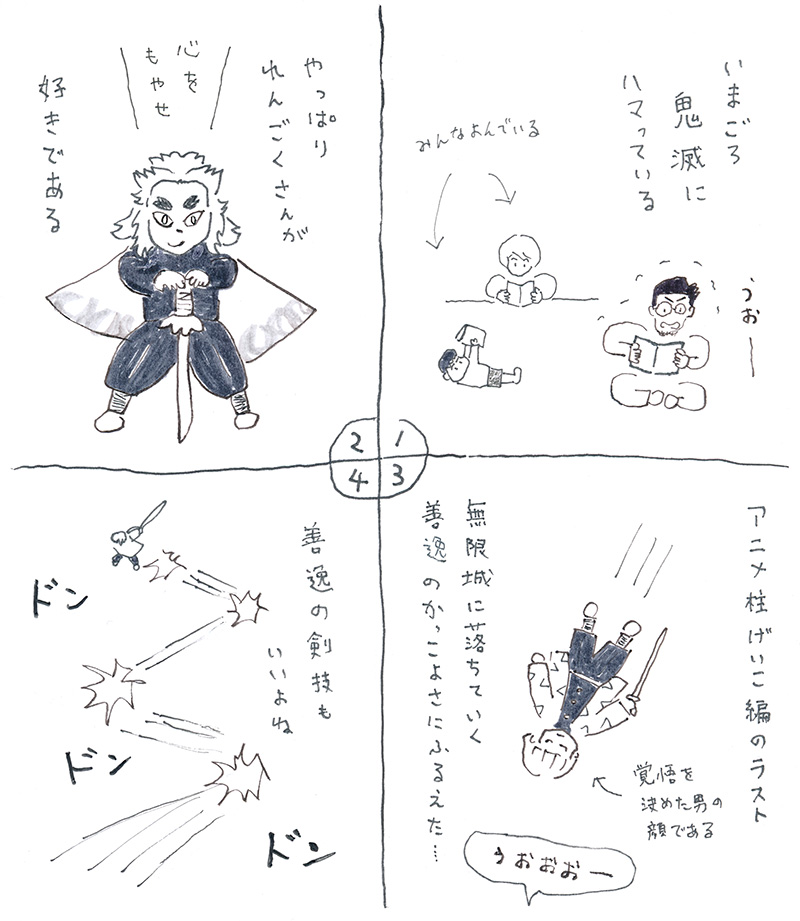 いまごろ
鬼滅に
ハマっている
みんなよんでいる
うおー
1
やっぱり
れんごくさんが
心を
もやせ
好きである
2
アニメ柱げいこ編のラスト
無限城に落ちていく
善逸のかっこよさにふるえた…
覚悟を
決めた男の
顔である
うおおおー
3
善逸の剣技も
いいよね
ドン
ドン
ドン
4